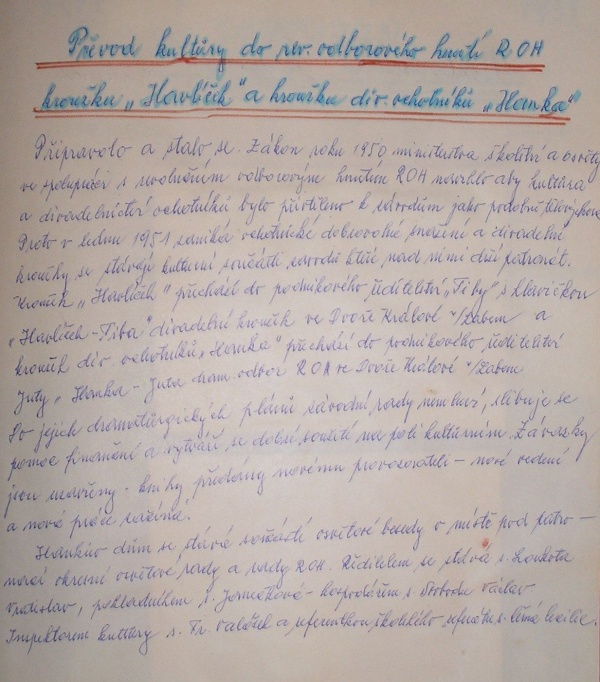 Převod kultúry do rev. odborového hnutí ROH
kroužku „Havlíček" a kroužku div. ochotníků „Hanka"
Připravolo a stalo se. Zákon roku 1950 ministerstva školství a osvěty
ve spolupráci s revolučním odborovým hnutím ROH navrhlo aby kultura
a divadelnictví ochotníků bylo přivtěleno k závodům jako podobní tělovýchova
Proto v lednu 1951 zaniká ochotnické dobrovolné snažení a divadelní
kroužky se stávají kulturní součástí závodů kteří nad nimi drží patronát.
Kroužek „Havlíček" přechází do podnikového ředitelství „Tiby" s hlavičkou
„Havlíček-Tiba" divadelní kroužek ve Dvoře Králové n/Labem a
kroužek div. ochotníků „Hanka" přechází do podnikového ředitelství
Juty „Hanka - Juta dram. odbor ROH ve Dvoře Králové n/Labem
Do jejich dramaturgických plánů závodní rady nemluví, slibuje se
pomoc finanční a vytváří se dobré soužití na poli kulturním. Závazky
jsou uzavřeny - knihy předány novému provozovateli - nové vedení
a nová práce začíná.
Hankův dům se stává součástí osvětové besedy v místě pod patro-
nací okresní osvětové rady a rady ROH. Ředitelem se stává s.
Vratislav, pokladníkem s. - hospodářem s. Svoboda Václav
Inspektorem kultury s. Fr. Valášek a referentkou školského referátu s. Černá Cecilie.